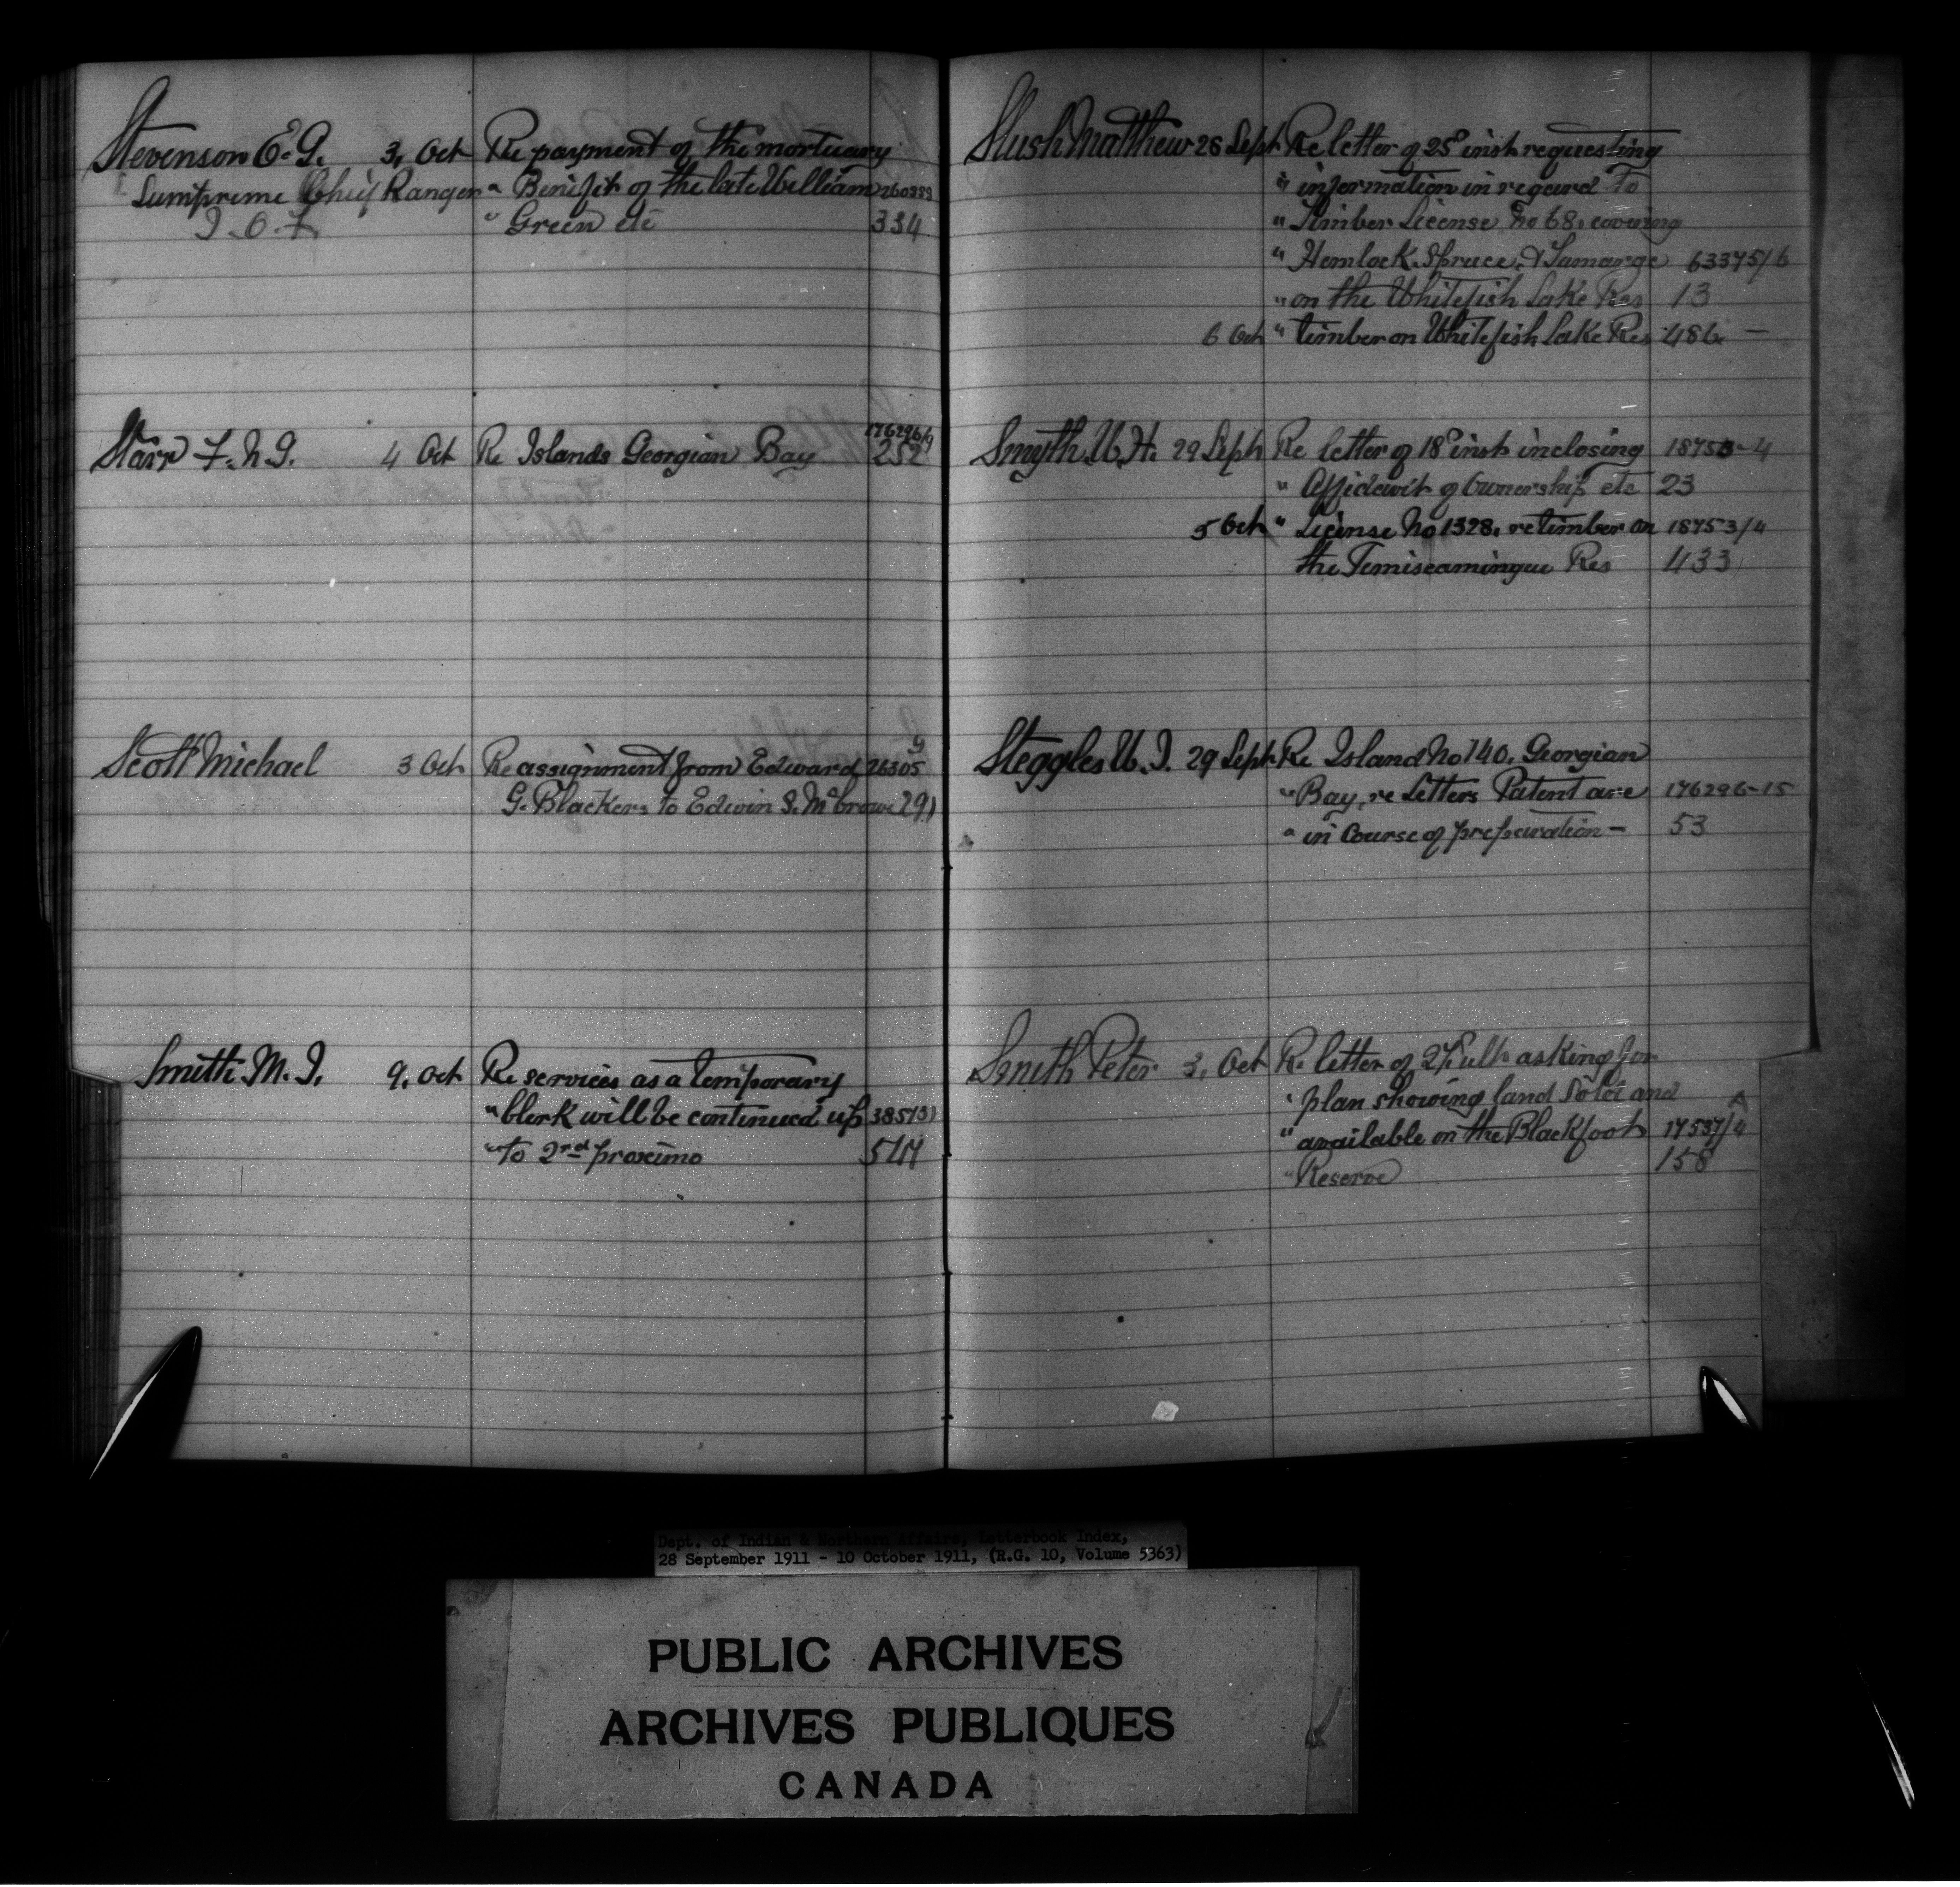 Stevenson E. G. 3, Oct Re payment of the mortuary
Sumpreme Chief Ranger " Benifit of the late William 260383
I.O.F. " Green etc 334
Starr F. N. G. 4 Oct Re Islands Georgian Bay 252
Scott Michael 3 Oct Re assignment from Edward 26305
G. Blackers to Edwin S. McCrowe 291
Smith M. I. 9, Oct Re services as a temporary
" Clerk will be continued up 38573
" to 2nd proximo 514
Slush Matthew 28 Sept Re letter of 25th inst requesting
" information in regard to
" Timber License No 68, covering
" Hemlock, Spruce, & Tamarac 63375/6
" on the Whitefish Lake Res 13
6 Oct " timber on Whitefish Lake Res 486 —
Smyth W. H. 29 Sept Re letter of 18th inst inclosing 18753-4
" Affidavit of Ownership etc 23
5 Oct " License No 1328, re timber on 18753/4
the Temiscamingue Res 433
Steggles W. I. 29 Sept Re Island No 140, Georgian
" Bay, re Letters Patent are 176296-15
" in Course of preparation — 53
Smith Peter 3, Oct Re letter of 27th ulto asking for
" plan showing land Sold and
" available on the Blackfoot 17537/4
" Reserve 158
Dept. of Indian & Northern Affairs, Letterbook Index,
28 September 1911 - 10 October 1911, (R.G. 10, Volume 5363)
PUBLIC ARCHIVES
ARCHIVES PUBLIQUES
CANADA